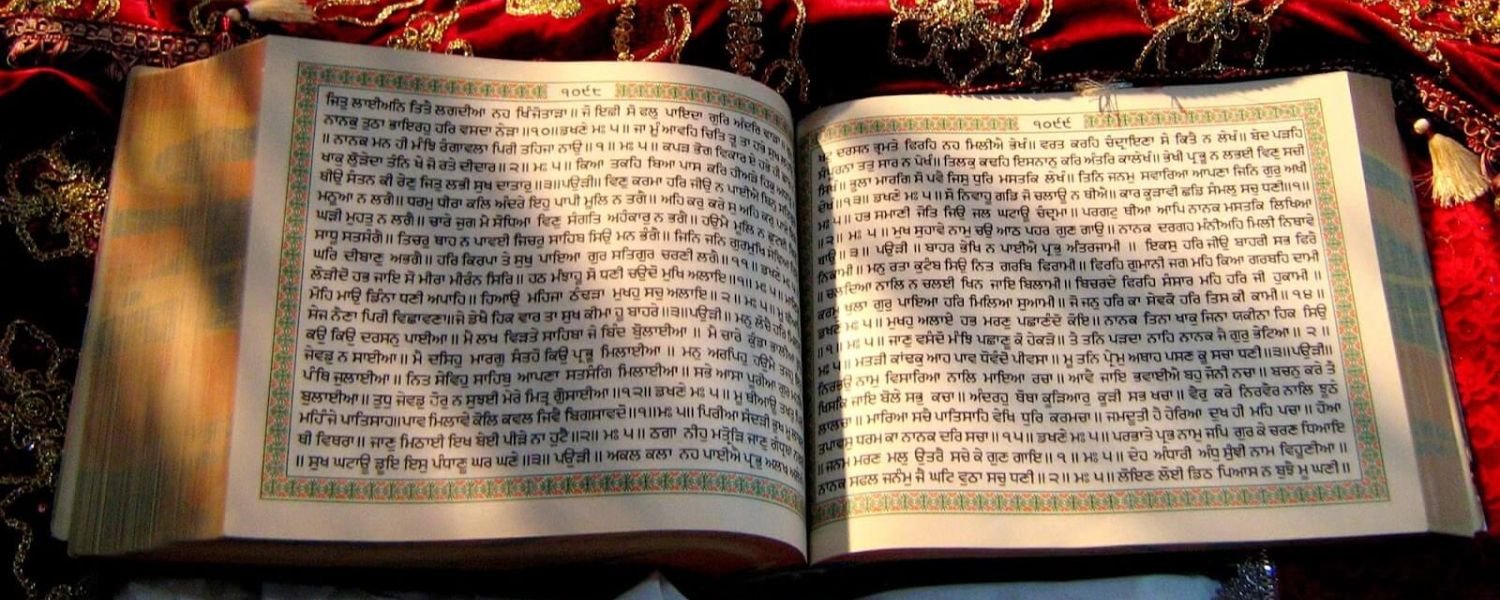 ੧੦੯੮
ਜਿਤੁ ਲਾਈਅਨਿ ਤਿਤੈ ਲਗਦੀਆ ਨਹ ਖਿੰਜੋਤਾੜਾ ॥ ਜੋ ਇਛੀ ਸੋ ਫਲੁ ਪਾਇਦਾ ਗੁਰਿ ਅੰਦਰਿ ਵਾੜਾ
ਨਾਨਕੁ ਤੁਠਾ ਭਾਇਰਹੁ ਹਰਿ ਵਸਦਾ ਨੇੜਾ ॥੧੦॥ ਡਖਣੇ ਮਃ ੫ ॥ ਜਾ ਮੂੰ ਆਵਹਿ ਚਿਤਿ ਤੂ ਤਾ ਹਭੇ ਸੁਖ
॥ ਨਾਨਕ ਮਨ ਹੀ ਮੰਝਿ ਰੰਗਾਵਲਾ ਪਿਰੀ ਤਹਿਜਾ ਨਾਉ ॥੧॥ ਮਃ ੫ ॥ ਕਪੜ ਭੋਗ ਵਿਕਾਰ ਏ ਹਭੇ ਹੀ
ਖਾਕੁ ਲੋੁੜੇਦਾ ਤੰਨਿ ਖੇ ਜੋ ਰਤੇ ਦੀਦਾਰ ॥੨॥ ਮਃ ੫ ॥ ਕਿਆ ਤਕਹਿ ਬਿਆ ਪਾਸ ਕਰਿ ਹੀਅੜੇ ਹਿਕੁ
ਥੀਉ ਸੰਤਨ ਕੀ ਰੇਣੁ ਜਿਤੁ ਲਭੀ ਸੁਖ ਦਾਤਾਰੁ ॥੩॥ ਪਉੜੀ ॥ ਵਿਣੁ ਕਰਮਾ ਹਰਿ ਜੀਉ ਨ ਪਾਈਐ
ਮਨੂਆ ਨ ਲਗੈ ॥ ਧਰਮੁ ਧੀਰਾ ਕਲਿ ਅੰਦਰੇ ਇਹੁ ਪਾਪੀ ਮੂਲਿ ਨ ਤਗੈ ॥ ਅਹਿ ਕਰੁ ਕਰੇ ਸੁ ਅਹਿ ਕਰੁ ਪਾਏ
ਘੜੀ ਮੁਹਤੁ ਨ ਲਗੈ ॥ ਚਾਰੇ ਜੁਗ ਮੈ ਸੋਧਿਆ ਵਿਣੁ ਸੰਗਤਿ ਅਹੰਕਾਰੁ ਨ ਭਗੈ ॥ ਹਉਮੈ ਮੂਲਿ ਨ ਛੁਟਈ ਵਿਣੁ
ਸਾਧੂ ਸਤਸੰਗੈ ॥ ਤਿਚਰੁ ਥਾਹ ਨ ਪਾਵਈ ਜਿਚਰੁ ਸਾਹਿਬ ਸਿਉ ਮਨ ਭੰਗੈ ॥ ਜਿਨਿ ਜਨਿ ਗੁਰਮੁਖਿ ਸੇਵਿਆ
ਘਰਿ ਦੀਬਾਣੁ ਅਭਗੈ ॥ ਹਰਿ ਕਿਰਪਾ ਤੇ ਸੁਖੁ ਪਾਇਆ ਗੁਰ ਸਤਿਗੁਰ ਚਰਣੀ ਲਗੈ ॥੧੧॥ ਡਖਣੇ
ਲੋੜੀਦੋ ਹਭ ਜਾਇ ਸੋ ਮੀਰਾ ਮੀਰੰਨ ਸਿਰਿ ॥ ਹਠ ਮੰਝਾਹੂ ਸੋ ਧਣੀ ਚਉਦੋ ਮੁਖਿ ਅਲਾਇ ॥੧॥ ਮਃ ੫
ਮੋਹਿ ਮਾਉ ਡਿੰਨਾ ਧਣੀ ਅਪਾਹਿ ॥ ਹਿਆਉ ਮਹਿਜਾ ਠੰਢੜਾ ਮੁਖਹੁ ਸਚੁ ਅਲਾਇ ॥੨॥ ਮਃ ੫ ॥
ਸੇਜ ਨੈਣਾ ਪਿਰੀ ਵਿਛਾਵਣਾ ॥ ਜੇ ਡੇਖੈ ਹਿਕ ਵਾਰ ਤਾ ਸੁਖ ਕੀਮਾ ਹੂ ਬਾਹਰੇ ॥੩॥ ਪਉੜੀ ॥ ਮਨੁ ਲੋਚੈ ਹਰਿ
ਕਉ ਕਿਉ ਦਰਸਨੁ ਪਾਈਆ ॥ ਮੈ ਲਖ ਵਿੜਤੇ ਸਾਹਿਬਾ ਜੇ ਬਿੰਦ ਬੋੁਲਾਈਆ ॥ ਮੈ ਚਾਰੇ ਕੁੰਡਾ ਭਾਲੀਆ
ਜੇਵਡੁ ਨ ਸਾਈਆ ॥ ਮੈ ਦਸਿਹੁ ਮਾਰਗੁ ਸੰਤਹੋ ਕਿਉ ਪ੍ਰਭੂ ਮਿਲਾਈਆ ॥ ਮਨੁ ਅਰਪਿਹੁ ਹਉਮੈ ਤਜਹੁ
ਪੰਥਿ ਜੁਲਾਈਆ ॥ ਨਿਤ ਸੇਵਿਹੁ ਸਾਹਿਬੁ ਆਪਣਾ ਸਤਸੰਗਿ ਮਿਲਾਈਆ ॥ ਸਭੇ ਆਸਾ ਪੂਰੀਆ ਗੁਰ
ਬੁਲਾਈਆ ॥ ਤੁਧੁ ਜੇਵਡੁ ਹੋਰੁ ਨ ਸੁਝਈ ਮੇਰੇ ਮਿਤ੍ਰ ਗੋੁਸਾਈਆ ॥੧੨॥ ਡਖਣੇ ਮਃ ੫ ॥ ਮੂ ਥੀਆਊ ਤਖਤੁ
ਮਹਿੰਜੇ ਪਾਤਿਸਾਹ ॥ ਪਾਵ ਮਿਲਾਵੇ ਕੋਲਿ ਕਵਲ ਜਿਵੈ ਬਿਗਸਾਵਦੋ ॥੧॥ ਮਃ ੫ ॥ ਪਿਰੀਆ ਸੰਦੜੀ ਭੁਖ ਮੂ
ਥੀ ਵਿਥਰਾ ॥ ਜਾਣੁ ਮਿਠਾਈ ਇਖ ਬੇਈ ਪੀੜੇ ਨਾ ਹੁਟੈ ॥੨॥ ਮਃ ੫ ॥ ਠਗਾ ਨੀਹੁ ਮਤ੍ਰੋੜਿ ਜਾਣੁ ਗੰਧ੍ਰਬਾ
॥ ਸੁਖ ਘਟਾਊ ਡੂਇ ਇਸੁ ਪੰਧਾਣੂ ਘਰ ਘਣੇ ॥੩॥ ਪਉੜੀ ॥ ਅਕਲ ਕਲਾ ਨਹ ਪਾਈਐ ਪ੍ਰਭੁ ਅਲਖ
੧੦੯੯
ਦਰਸਨ ਭ੍ਰਮਤੇ ਫਿਰਹਿ ਨਹ ਮਿਲੀਐ ਭੇਖੰ ॥ ਵਰਤ ਕਰਹਿ ਚੰਦ੍ਰਾਇਣਾ ਸੇ ਕਿਤੈ ਨ ਲੇਖੰ ॥ ਬੇਦ ਪੜਹਿ
ਸੰਪੂਰਨਾ ਤਤੁ ਸਾਰ ਨ ਪੇਖੰ ॥ ਤਿਲਕੁ ਕਢਹਿ ਇਸਨਾਨੁ ਕਰਿ ਅੰਤਰਿ ਕਾਲੇਖੰ ॥ ਭੇਖੀ ਪ੍ਰਭੂ ਨ ਲਭਈ ਵਿਣੁ ਸਚੀ
ਸਿਖੰ ॥ ਭੂਲਾ ਮਾਰਗਿ ਸੋ ਪਵੈ ਜਿਸੁ ਧੁਰਿ ਮਸਤਕਿ ਲੇਖੰ ॥ ਤਿਨਿ ਜਨਮੁ ਸਵਾਰਿਆ ਆਪਣਾ ਜਿਨਿ ਗੁਰੁ ਅਖੀ
ਦੇਖੰ ॥੧੩॥ ਡਖਣੇ ਮਃ ੫ ॥ ਸੋ ਨਿਵਾਹੂ ਗਡਿ ਜੋ ਚਲਾਊ ਨ ਥੀਐ ॥ ਕਾਰ ਕੂੜਾਵੀ ਛਡਿ ਸੰਮਲੁ ਸਚੁ ਧਣੀ ॥੧॥
ਮਃ ੫ ॥ ਹਭ ਸਮਾਣੀ ਜੋਤਿ ਜਿਉ ਜਲ ਘਟਾਊ ਚੰਦ੍ਰਮਾ ॥ ਪਰਗਟੁ ਥੀਆ ਆਪਿ ਨਾਨਕ ਮਸਤਕਿ ਲਿਖਿਆ
॥੨॥ ਮਃ ੫ ॥ ਮੁਖ ਸੁਹਾਵੇ ਨਾਮੁ ਚਉ ਆਠ ਪਹਰ ਗੁਣ ਗਾਉ ॥ ਨਾਨਕ ਦਰਗਹ ਮੰਨੀਅਹਿ ਮਿਲੀ ਨਿਥਾਵੇ
ਥਾਉ ॥੩॥ ਪਉੜੀ ॥ ਬਾਹਰ ਭੇਖਿ ਨ ਪਾਈਐ ਪ੍ਰਭੁ ਅੰਤਰਜਾਮੀ ॥ ਇਕਸੁ ਹਰਿ ਜੀਉ ਬਾਹਰੀ ਸਭ ਫਿਰੈ
ਨਿਕਾਮੀ ॥ ਮਨੁ ਰਤਾ ਕੁਟੰਬ ਸਿਉ ਨਿਤ ਗਰਬਿ ਫਿਰਾਮੀ ॥ ਫਿਰਹਿ ਗੁਮਾਨੀ ਜਗ ਮਹਿ ਕਿਆ ਗਰਬਹਿ ਦਾਮੀ
॥ ਚਲਦਿਆ ਨਾਲਿ ਨ ਚਲਈ ਖਿਨ ਜਾਇ ਬਿਲਾਮੀ ॥ ਬਿਚਰਦੇ ਫਿਰਹਿ ਸੰਸਾਰ ਮਹਿ ਹਰਿ ਜੀ ਹੁਕਾਮੀ ॥
ਕਰਮੁ ਖੁਲਾ ਗੁਰੁ ਪਾਇਆ ਹਰਿ ਮਿਲਿਆ ਸੁਆਮੀ ॥ ਜੋ ਜਨੁ ਹਰਿ ਕਾ ਸੇਵਕੋ ਹਰਿ ਤਿਸ ਕੀ ਕਾਮੀ ॥੧੪॥
ਡਖਣੇ ਮਃ ੫ ॥ ਮੁਖਹੁ ਅਲਾਏ ਹਭ ਮਰਣੁ ਪਛਾਣੰਦੋ ਕੋਇ ॥ ਨਾਨਕ ਤਿਨਾ ਖਾਕੁ ਜਿਨਾ ਯਕੀਨਾ ਹਿਕ ਸਿਉ
॥੧॥ ਮਃ ੫ ॥ ਜਾਣੁ ਵਸੰਦੋ ਮੰਝਿ ਪਛਾਣੂ ਕੋ ਹੇਕੜੋ ॥ ਤੈ ਤਨਿ ਪੜਦਾ ਨਾਹਿ ਨਾਨਕ ਜੈ ਗੁਰੁ ਭੇਟਿਆ ॥੨॥
ਮਃ ੫ ॥ ਮਤੜੀ ਕਾਂਢਕੁ ਆਹ ਪਾਵ ਧੋਵੰਦੋ ਪੀਵਸਾ ॥ ਮੂ ਤਨਿ ਪ੍ਰੇਮੁ ਅਥਾਹ ਪਸਣ ਕੂ ਸਚਾ ਧਣੀ ॥੩॥ ਪਉੜੀ ॥
ਨਿਰਭਉ ਨਾਮੁ ਵਿਸਾਰਿਆ ਨਾਲਿ ਮਾਇਆ ਰਚਾ ॥ ਆਵੈ ਜਾਇ ਭਵਾਈਐ ਬਹੁ ਜੋਨੀ ਨਚਾ ॥ ਬਚਨੁ ਕਰੇ ਤੈ
ਖਿਸਕਿ ਜਾਇ ਬੋਲੇ ਸਭੁ ਕਚਾ ॥ ਅੰਦਰਹੁ ਥੋਥਾ ਕੂੜਿਆਰੁ ਕੂੜੀ ਸਭ ਖਚਾ ॥ ਵੈਰੁ ਕਰੇ ਨਿਰਵੈਰ ਨਾਲਿ ਝੂਠੇ
ਲਾਲਚਾ ॥ ਮਾਰਿਆ ਸਚੈ ਪਾਤਿਸਾਹਿ ਵੇਖਿ ਧੁਰਿ ਕਰਮਚਾ ॥ ਜਮਦੂਤੀ ਹੈ ਹੇਰਿਆ ਦੁਖ ਹੀ ਮਹਿ ਪਚਾ ॥ ਹੋਆ
ਤਪਾਵਸੁ ਧਰਮ ਕਾ ਨਾਨਕ ਦਰਿ ਸਚਾ ॥੧੫॥ ਡਖਣੇ ਮਃ ੫ ॥ ਪਰਭਾਤੇ ਪ੍ਰਭ ਨਾਮੁ ਜਪਿ ਗੁਰ ਕੇ ਚਰਣ ਧਿਆਇ
॥ ਜਨਮ ਮਰਣ ਮਲੁ ਉਤਰੈ ਸਚੇ ਕੇ ਗੁਣ ਗਾਇ ॥੧॥ ਮਃ ੫ ॥ ਦੇਹ ਅੰਧਾਰੀ ਅੰਧੁ ਸੁੰਞੀ ਨਾਮ ਵਿਹੂਣੀਆ ॥
ਨਾਨਕ ਸਫਲ ਜਨੰਮੁ ਜੈ ਘਟਿ ਵੁਠਾ ਸਚੁ ਧਣੀ ॥੨॥ ਮਃ ੫ ॥ ਲੋਇਣ ਲੋਈ ਡਿਠ ਪਿਆਸ ਨ ਬੁਝੈ ਮੂ ਘਣੀ ॥